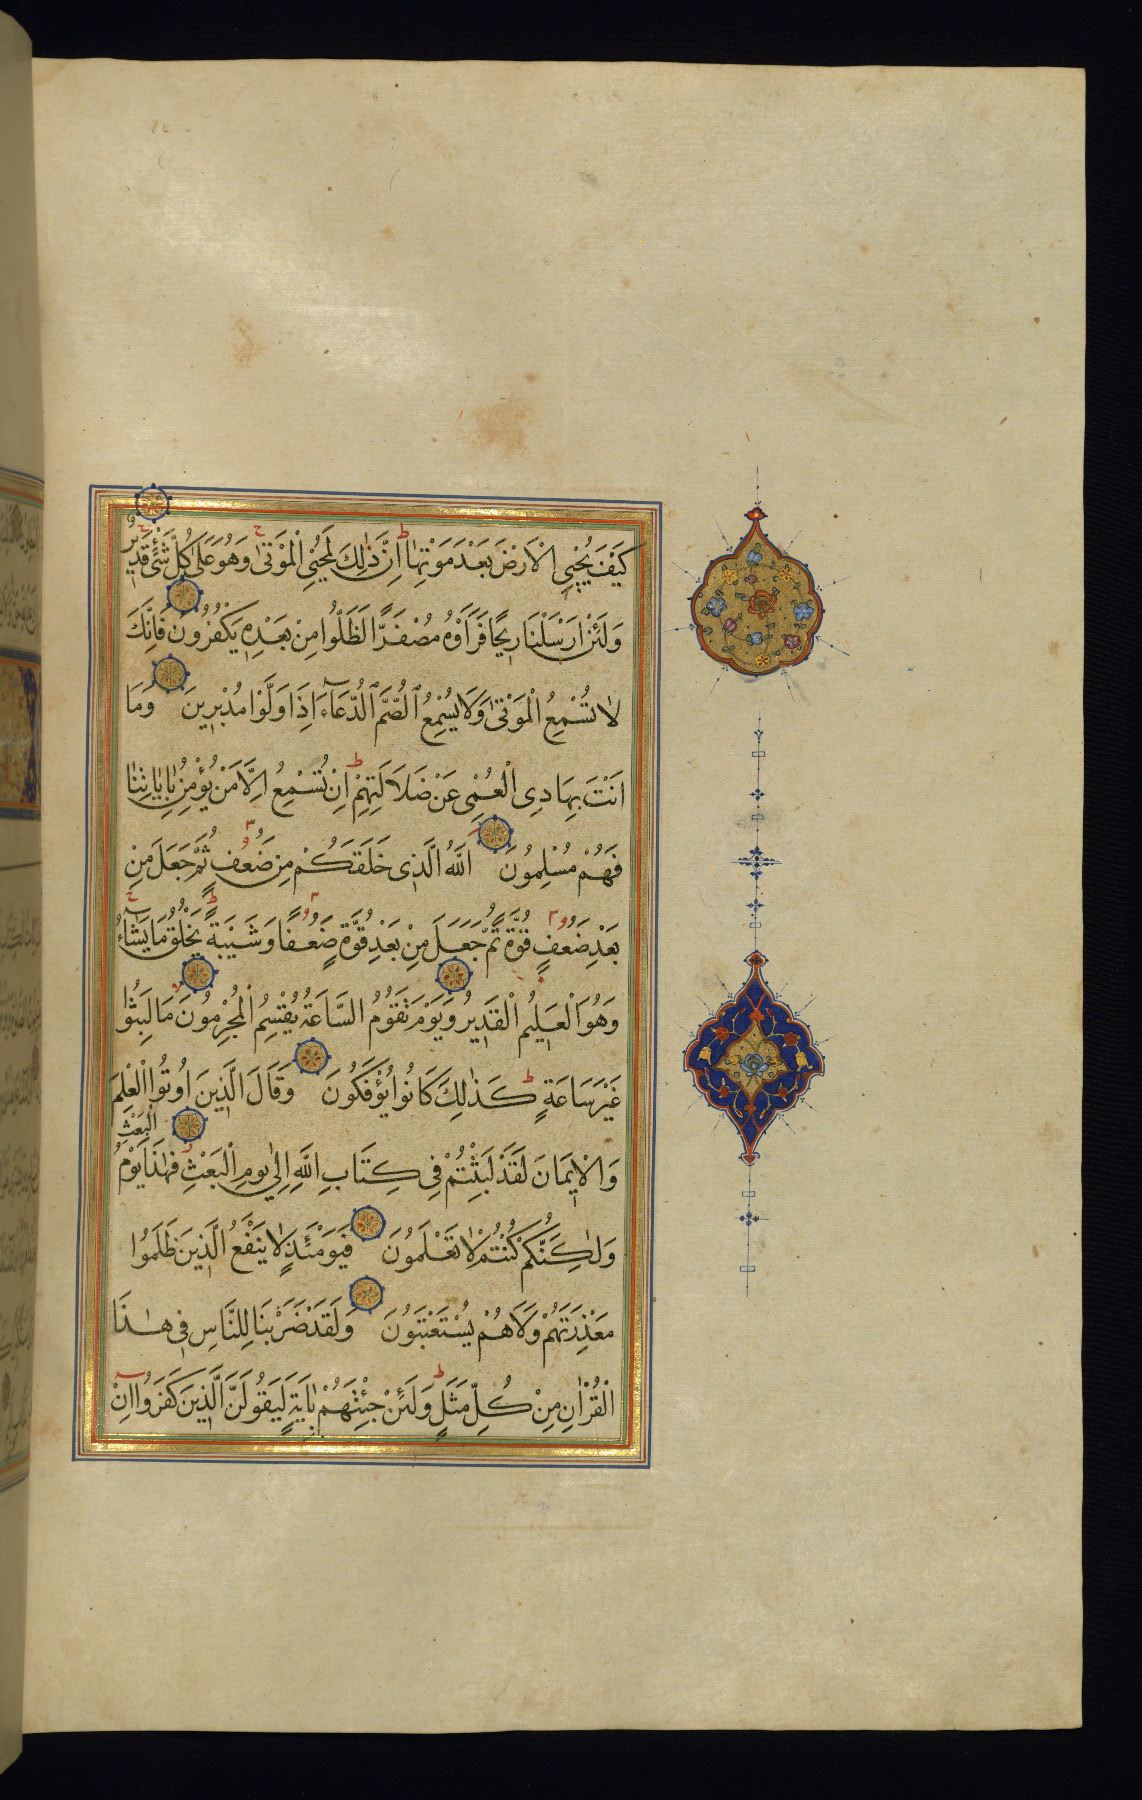 كَيْفَ يُحْيِي الْاَرْضَ بَعْدَ مَوْتِهَا ط اِنَّ ذٰلِكَ لَمُحْيِي الْمَوْتٰى ج وَهُوَ عَلٰى كُلِّ شَىْءٍ قَدِيرٌ
وَلَئِنْ اَرْسَلْنَا رِيحًا فَرَاَوْهُ مُصْفَرًّا لَظَلُّوا مِنْ بَعْدِهِ يَكْفُرُونَ فَاِنَّكَ
لَا تُسْمِعُ الْمَوْتٰى وَلَا يُسْمِعُ الصُّمَّ الدُّعَاۤءَ اِذَا وَلَّوْا مُدْبِرِينَ وَمَا
اَنْتَ بِهَادِى الْعُمْىِ عَنْ ضَلَالَتِهِمْ ط اِنْ تُسْمِعُ اِلَّا مَنْ يُؤْمِنُ بِاٰيَاتِنَا
فَهُمْ مُسْلِمُونَ اَللّٰهُ الَّذِى خَلَقَكُمْ مِنْ ضَعُفٍ ثُمَّ جَعَلَ مِنْ
بَعْدِ ضَعُفٍ قُوَّةً ثُمَّ جَعَلَ مِنْ بَعْدِ قُوَّةٍ ضَعُفًا وَشَيْبَةً ط يَخْلُقُ مَا يَشَاۤءُ ج
وَهُوَ الْعَلِيمُ الْقَدِيرُ وَيَوْمَ تَقُومُ السَّاعَةُ يُقْسِمُ الْمُجْرِمُونَ مَا لَبِثُوا
غَيْرَ سَاعَةٍ ط كَذٰلِكَ كَانُوا يُؤْفَكُونَ وَقَالَ الَّذِينَ اُوتُوا الْعِلْمَ
وَالْاِيمَانَ لَقَدْ لَبِثْتُمْ فِى كِتَابِ اللّٰهِ اِلٰى يَوْمِ الْبَعْثِ فَهٰذَا يَوْمُ الْبَعْثِ
وَلٰكِنَّكُمْ كُنْتُمْ لَا تَعْلَمُونَ فَيَوْمَئِذٍ لَا يَنْفَعُ الَّذِينَ ظَلَمُوا
مَعْذِرَتُهُمْ وَلَا هُمْ يُسْتَعْتَبُونَ وَلَقَدْ ضَرَبْنَا لِلنَّاسِ فِى هٰذَا
الْقُرْاٰنِ مِنْ كُلِّ مَثَلٍ ط وَلَئِنْ جِئْتَهُمْ بِاٰيَةٍ لَيَقُولَنَّ الَّذِينَ كَفَرُوا اِنْ